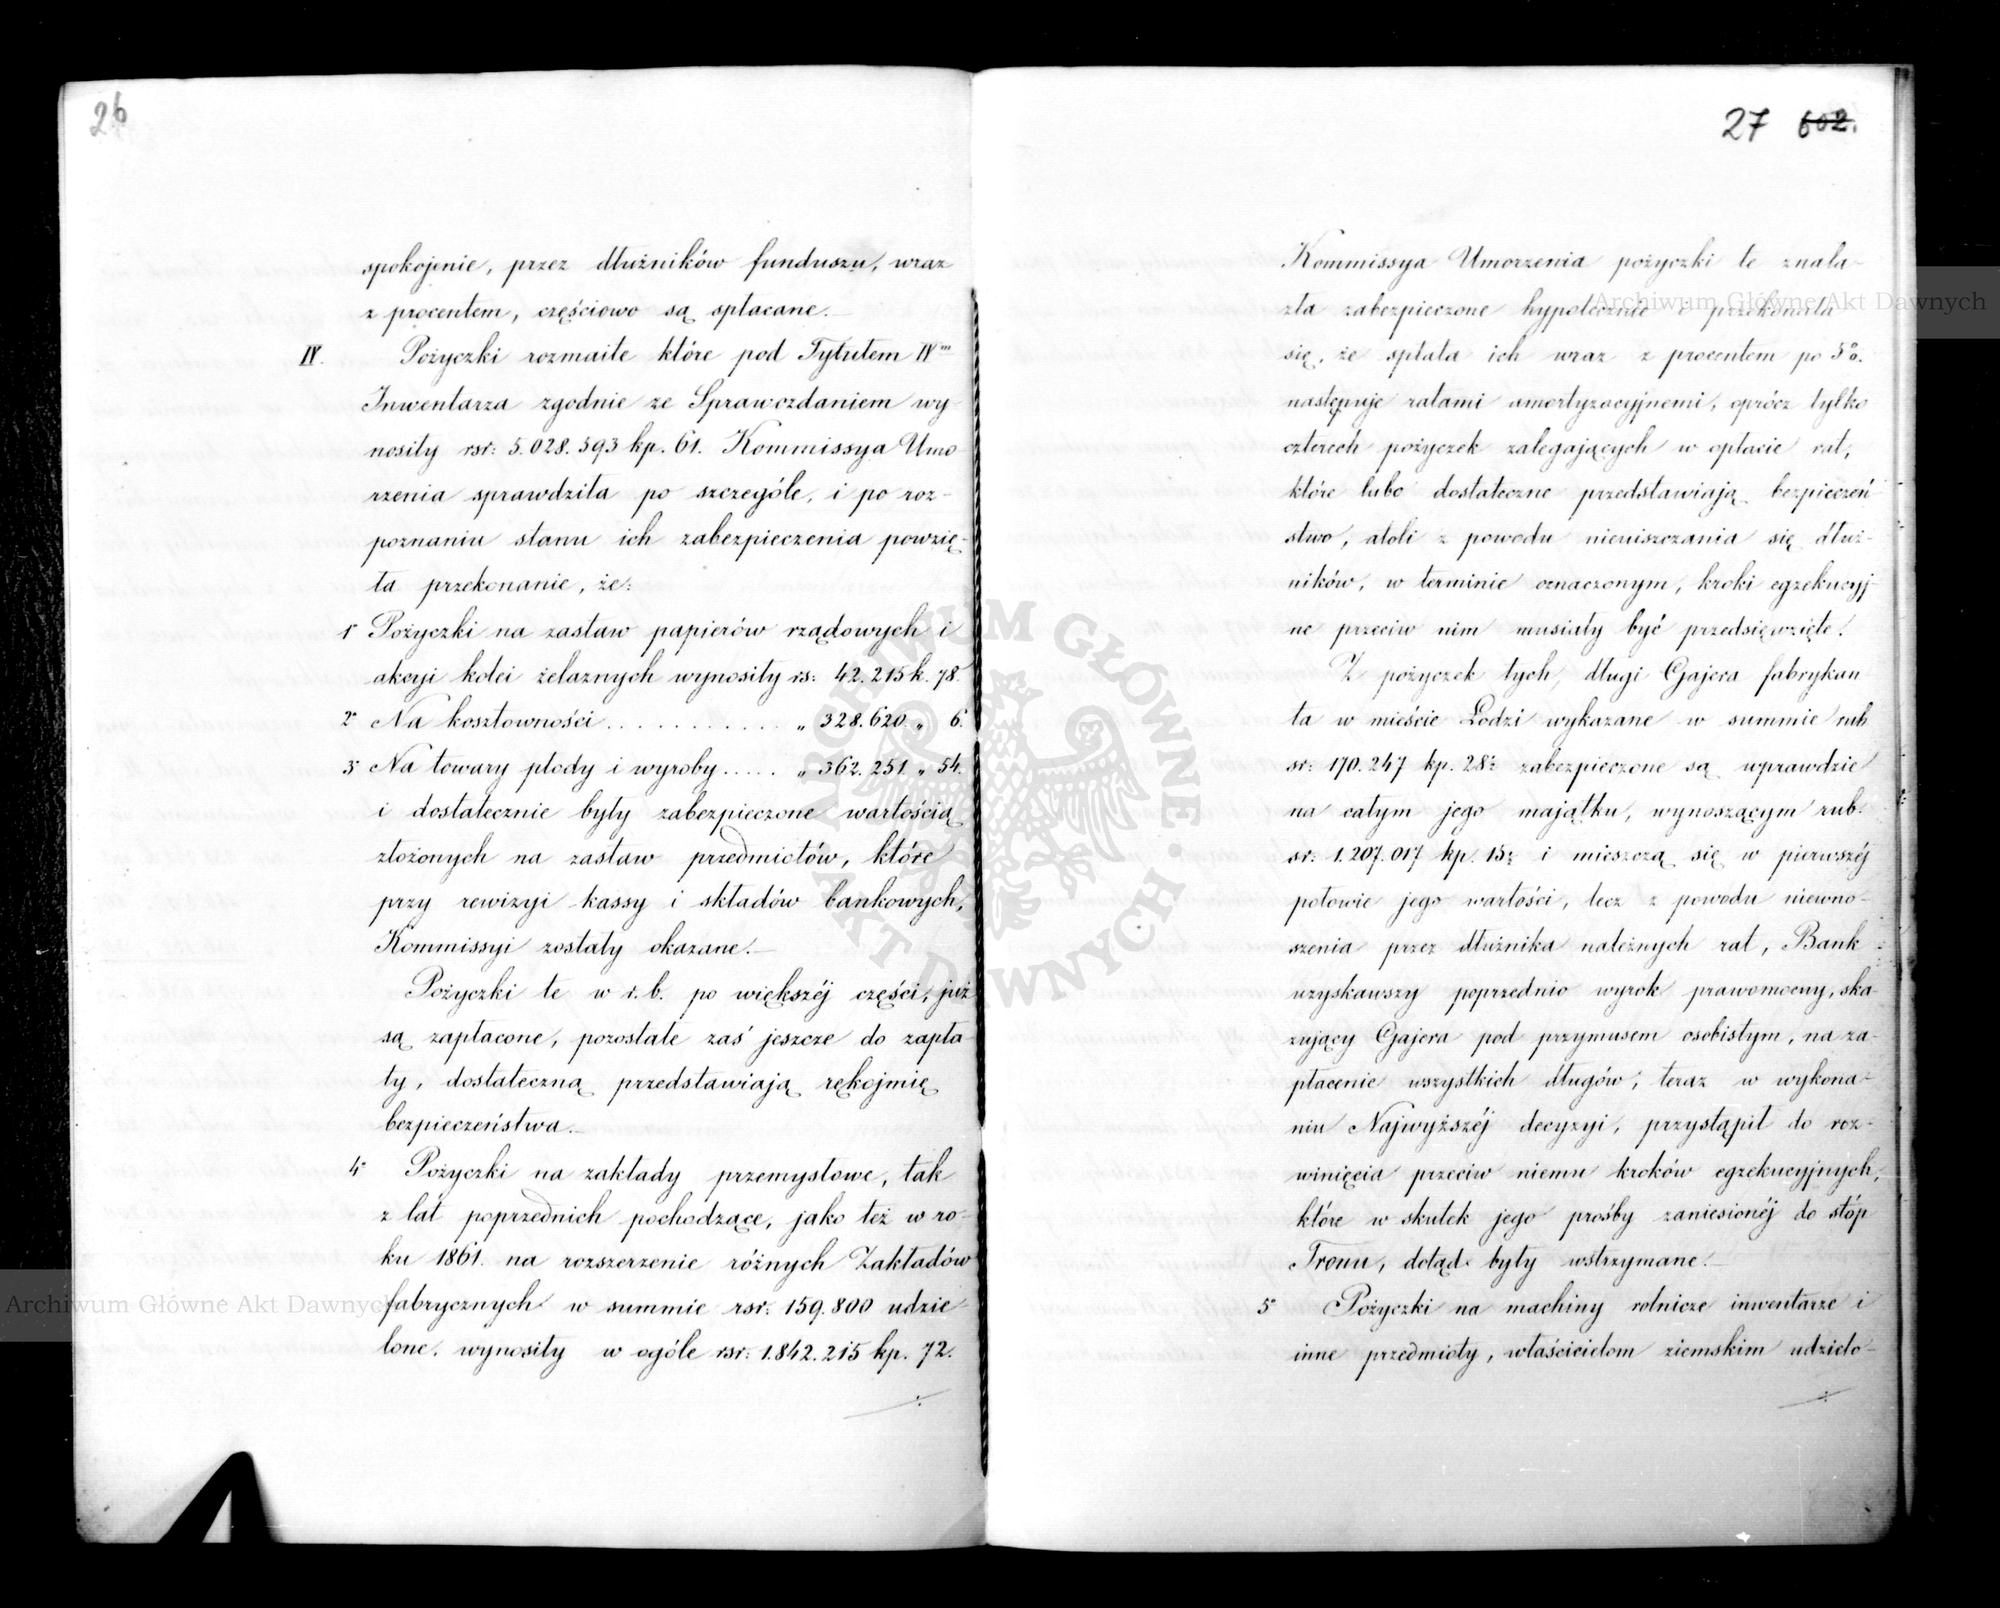 26
spokojenie, przez dłużników funduszu, wraz
z procentem, częściowo są spłacane.—
IV. Pożyczki rozmaite które pod Tytułem IVm
Inwentarza zgodnie ze Sprawozdaniem wy-
nosiły rsr: 5.028.593 kp. 61. Kommissya Umo
rzenia sprawdziła po szczególe, i po roz-
poznaniu stanu ich zabezpieczenia powzię-
ła przekonanie, że:
1° Pożyczki na zastaw papierów rządowych i
akcyi kolei żelaznych wynosiły rs: 42.215 k. 78.
2° Na kosztowności . . . . . . . . . . . . „ 328.620 „ 6.
3° Na towary płody i wyroby . . . . . „ 362.251 „ 54.
i dostatecznie były zabezpieczone wartością
złożonych na zastaw przedmiotów, które
przy rewizyi kassy i składów bankowych,
Kommissyi zostały okazane.—
Pożyczki te w r. b. po większéj części, już
są zapłacone, pozostałe zaś jeszcze do zapła-
ty, dostateczną przedstawiają rękojmię
bezpieczeństwa.—
4° Pożyczki na zakłady przemysłowe, tak
z lat poprzednich pochodzące, jako też w ro-
ku 1861. na rozszerzenie różnych Zakładów
fabrycznych w summie rsr: 159.800 udzie-
lone, wynosiły w ogóle rsr: 1.842.215 kp. 72.
27 602.
Kommissya Umorzenia pożyczki te znala-
zła zabezpieczone hypotecznie i przekonała
się, że spłata ich wraz z procentem po 5%.
następuje ratami amortyzacyjnemi, oprócz tylko
czterech pożyczek zalegających w opłacie rat,
które lubo dostateczne przedstawiają bezpieczeń
stwo, atoli z powodu nieuiszczania się dłuż-
ników, w terminie oznaczonym, kroki egzekucyj-
ne przeciw nim musiały być przedsięwzięte.
Z pożyczek tych, długi Gajera fabrykan
ta w mieście Łodzi wykazane w summie rub
sr: 170.247 kp. 28½ zabezpieczone są wprawdzie
na całym jego majątku, wynoszącym rub.
sr: 1.207.017 kp. 15½ i mieszczą się w pierwszéj
połowie jego wartości, lecz z powodu niewno-
szenia przez dłużnika należnych rat, Bank
uzyskawszy poprzednio wyrok prawomocny, ska-
zujący Gajera pod przymusem osobistym, na za-
płacenie wszystkich długów, teraz w wykona-
niu Najwyższéj decyzyi, przystąpił do roz-
winięcia przeciw niemu kroków egzekucyjnych,
które w skutek jego prośby zaniesionéj do stóp
Tronu, dotąd były wstrzymane.—
5° Pożyczki na machiny rolnicze inwentarze i
inne przedmioty, właścicielom ziemskim udzielo-
Archiwum Główne Akt Dawnych
Archiwum Główne Akt Dawnych
ARCHIWUM GŁÓWNE · AKT DAWNYCH ·